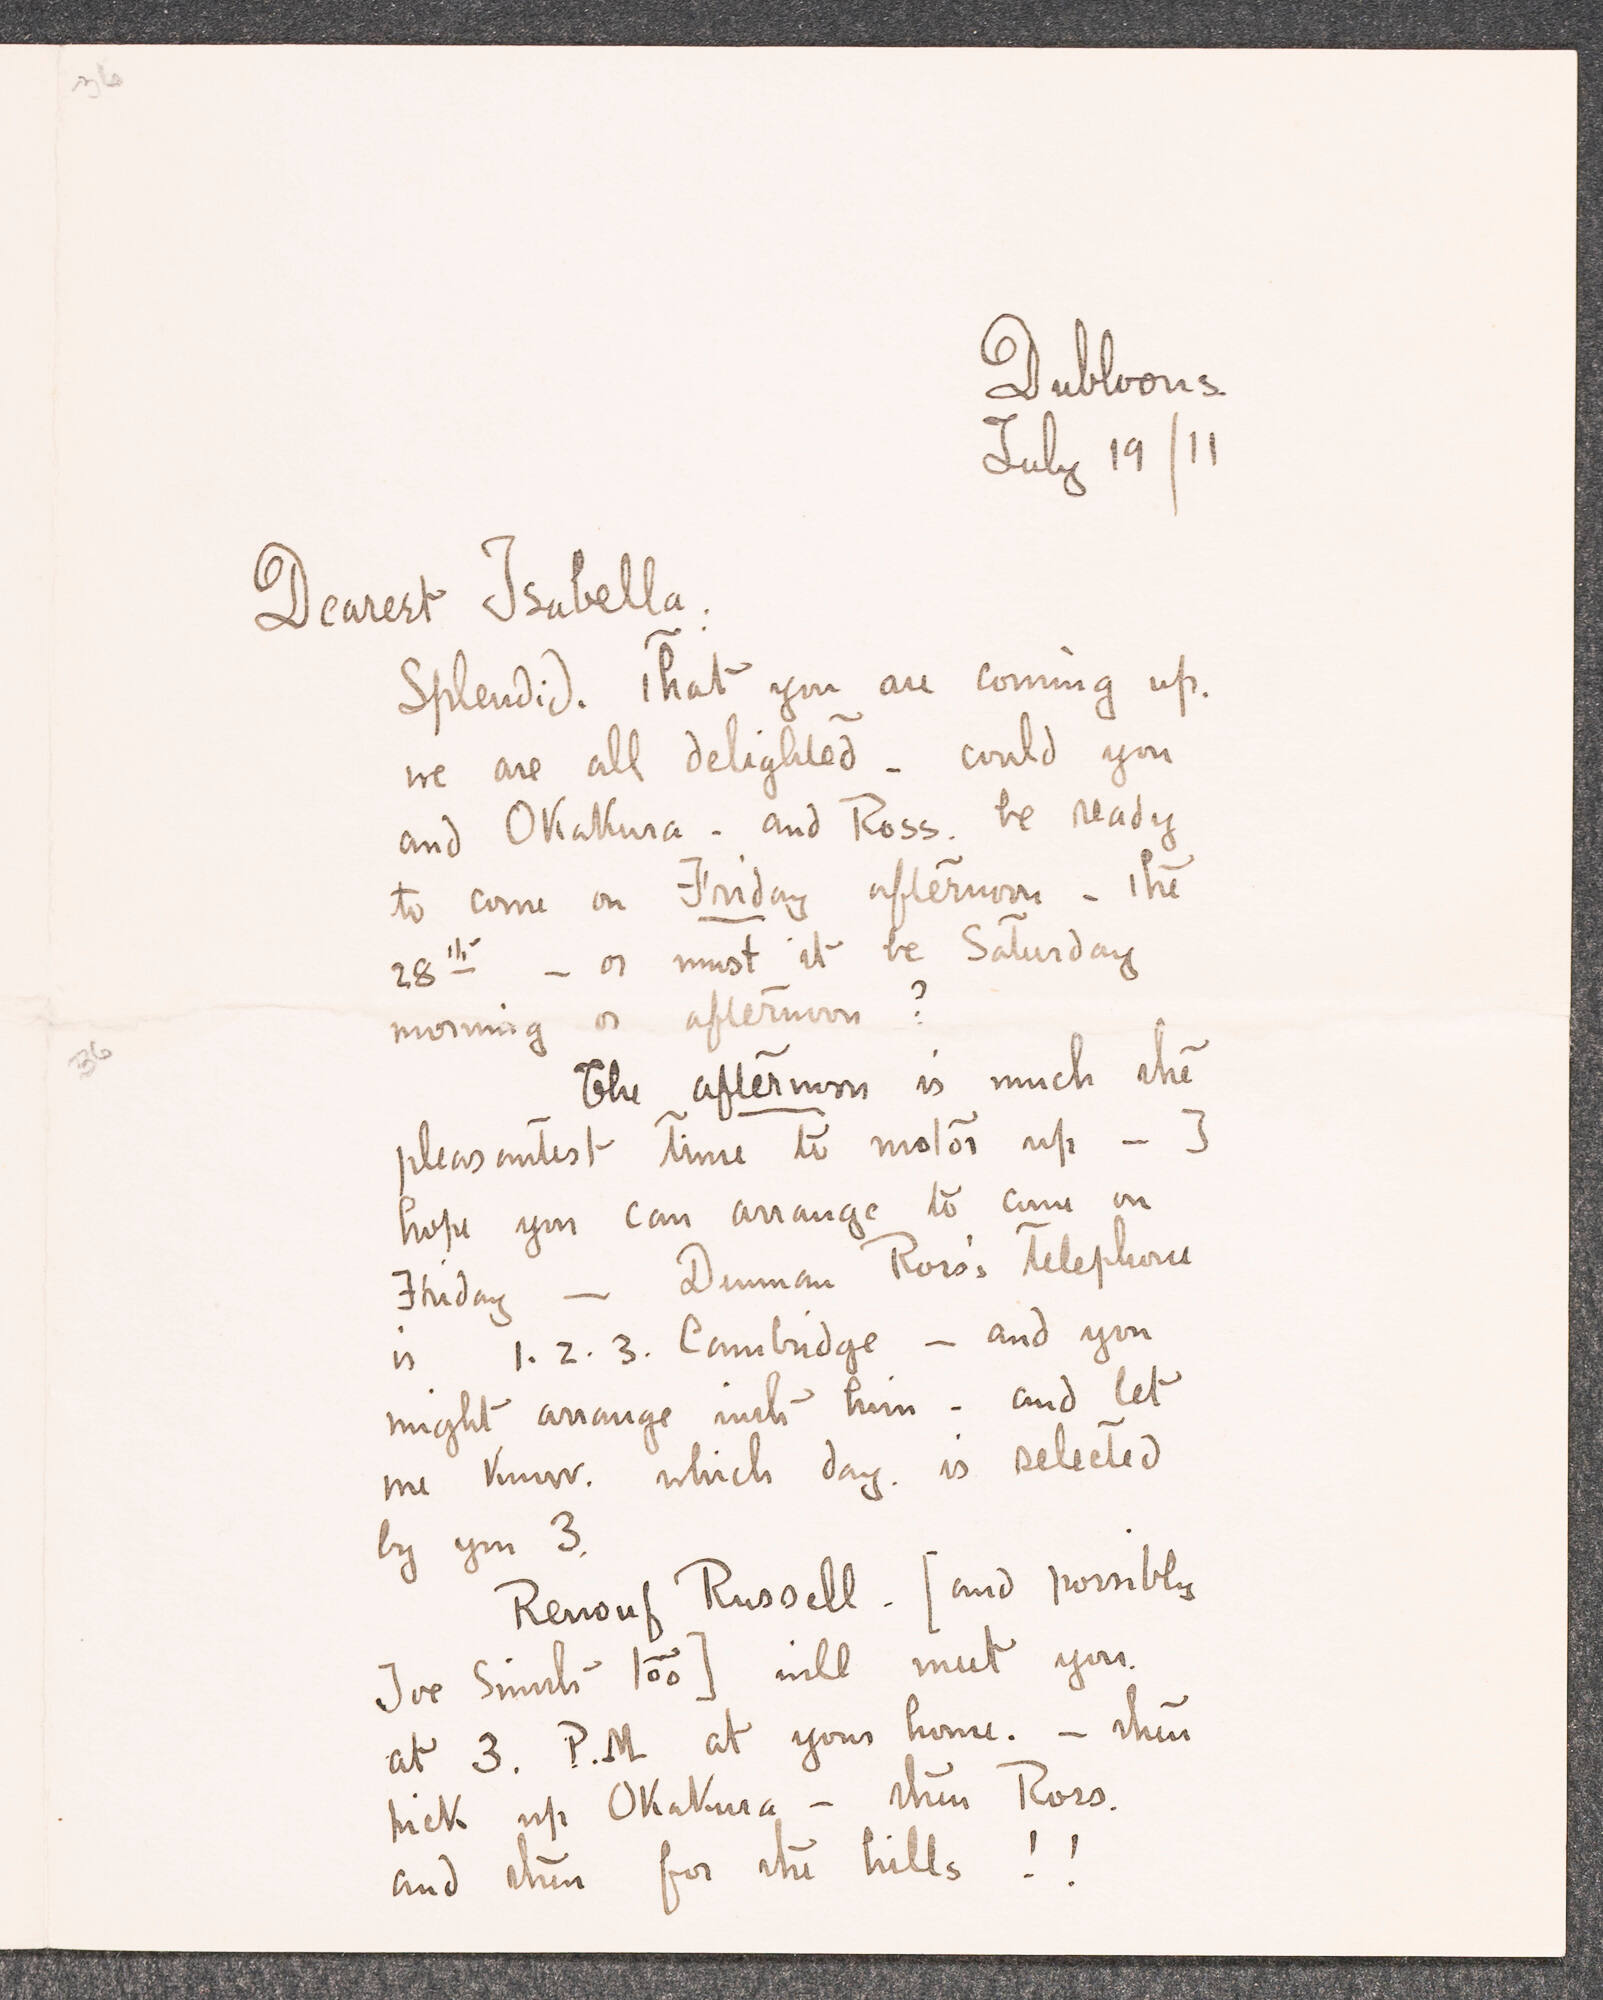 36
Dubloons.
July 19/11
Dearest Isabella.
Splendid. That you are coming up.
we are all delighted - could you
and OKaKura - and Ross. be ready
to come on Friday afternoon - the
28th - or must it be Saturday
morning or afternoon ?
36
The afternoon is much the
pleasantest time to motor up - I
hope you can arrange to come on
Friday - Denman Ross's telephone
is 1. 2. 3. Cambridge - and you
might arrange with him - and let
me Know. which day. is selected
by you 3.
Renouf Russell - [and possibly
Joe Smith too] will meet you.
at 3. P.M at your home. - then
pick up OKaKura - then Ross.
and then for the hills !!